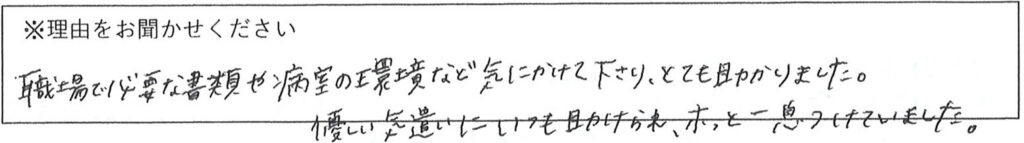 ※理由をお聞かせください
職場で必要な書類や病室の環境など気にかけて下さり、とても助かりました。
優しい気遣いにいつも助けられ、ホッと一息つけていました。